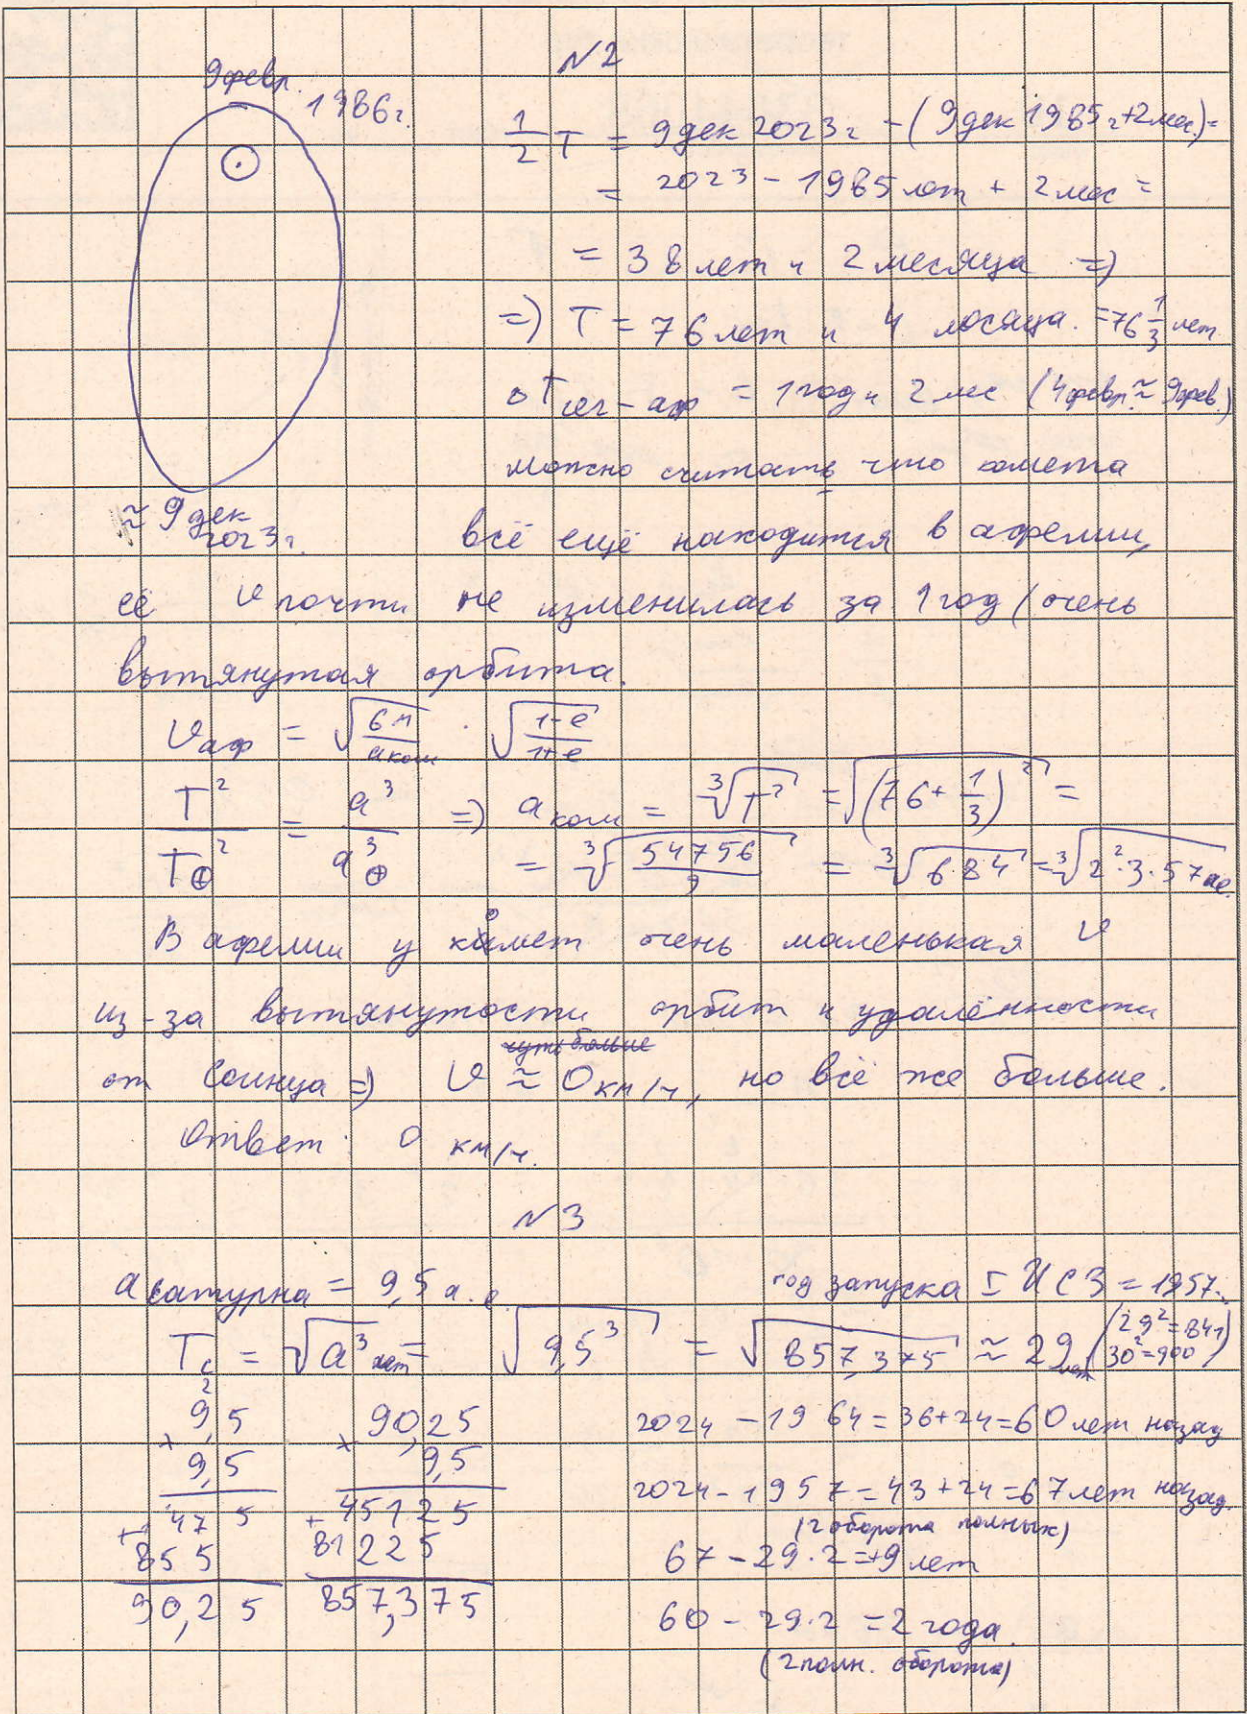 N2
9 февр.
1986 г.
1/2 T = 9 дек 2023 г - (9 дек 1985 г + 2 мес.) =
= 2023 - 1985 лет + 2 мес =
= 38 лет и 2 месяца =>
=> T = 76 лет и 4 месяца. = 76 1/3 лет
T сег-аф = 1 год и 2 мес (4 февр. ≈ 9 фев.)
можно считать что комета
≈ 9 дек 2023 г.
всё ещё находится в афелии,
её v почти не изменилась за 1 год (очень
вытянутая орбита.
v аф = √(GM/a ком) · √(1-e/1+e)
T²/T⊕² = a³/a⊕³ => a ком = ∛T² = √(76+1/3)² =
= ∛(54756/9) = ∛(6·84) = ∛(2²·3·57) ае.
В афелии у комет очень маленькая v
из-за вытянутости орбит и удалённости
чуть больше
от Солнца => v ≈ 0 км/ч, но всё же больше.
Ответ: 0 км/ч.
N3
a сатурна = 9,5 а.е.
год запуска I ИСЗ = 1957г.
Tс = √a³ лет = √9,5³ = √857,375 ≈ 29 лет (29²=841 30²=900)
2
9,5
× 9,5
475
+ 855
90,25
90,25
× 9,5
45125
+ 81225
857,375
2024 - 1964 = 36+24 = 60 лет назад
2024 - 1957 = 43+24 = 67 лет назад.
(2 оборота полных)
67 - 29·2 = 9 лет
60 - 29·2 = 2 года.
(2 полн. оборота)